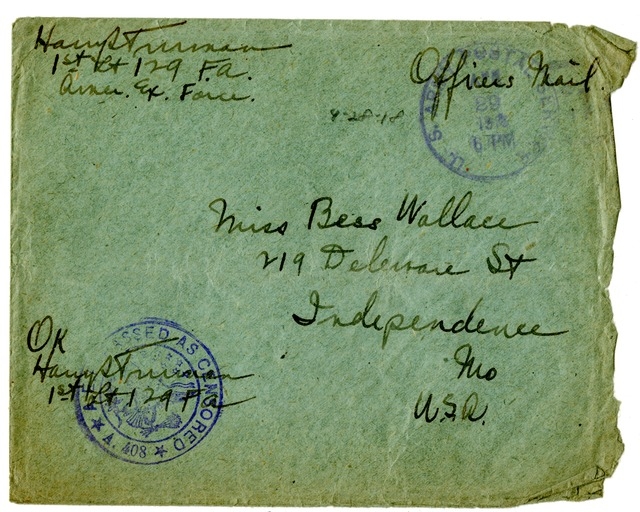 Harry S Truman
1st Lt 129 F.A.
Amer. Ex. Force.
Officers Mail.
4-28-18
29
6 PM
Miss Bess Wallace
219 Deleware St
Independence
Mo
U.S.A.
OK
Harry S Truman
1st Lt 129 FA
PASSED AS CENSORED
A. 408